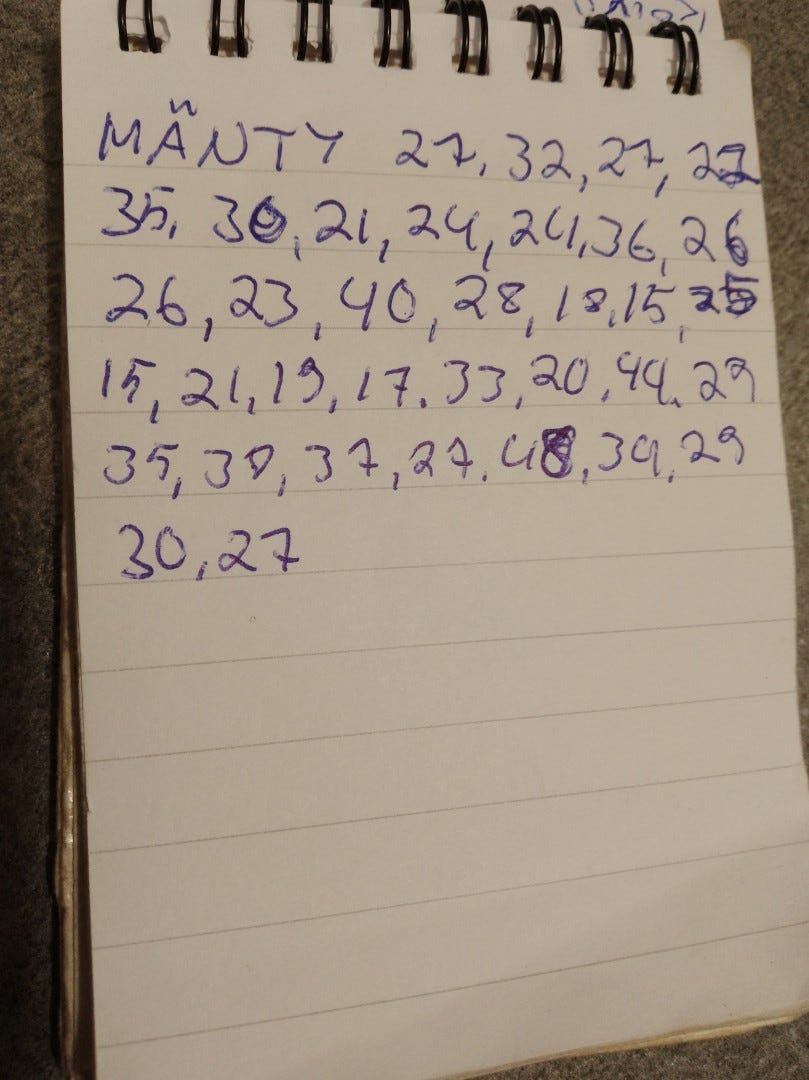 MÄNTY 27, 32, 27, 22
35, 36, 21, 24, 24, 36, 26
26, 23, 40, 28, 18, 15, 25
15, 21, 19, 17. 33, 20, 44. 29
35, 30, 37, 27. 48, 34, 29
30, 27